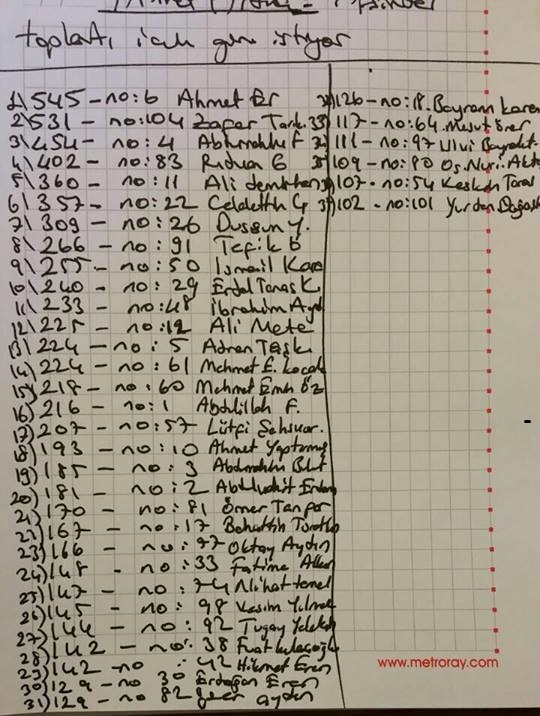 toplantı için gün istiyor
1\545 - no:6 Ahmet Er
2\531 - no:104 Zafer Tark.
3\454 - no:4 Abdurrahim F
4\402 - no:83 Rıdvan G
5\360 - no:11 Ali
6\357 - no:22 Celalettin G
7\309 - no:26 Dursun Y.
8\266 - no:91 Tefik B
9\255 - no:50 İsmail Kara
10\240 - no:29 Erdal Tanas K
11\233 - no:48 İbrahim Ayd
12\225 - no:12 Ali Mete
13\224 - no:5 Adnan Taşkı
14)224 - no:61 Mehmet E. Koçak
15)218 - no:60 Mehmet Emin Öz
16)216 - no:1 Abdilillah F.
17)207 - no:57 Lütfi Şehsuvar.
18)193 - no:10 Ahmet Yaptırmış
19)185 - no:3 Abdurrahim Bul
20)181 - no:2 Abdulvahit Erdem
21)170 - no:81 Ömer Tanper
22)167 - no:17 Bahattin
23)166 - no:77 Oktay Aydın
24)148 - no:33 Fatime
25)147 - no:74 Nihat temel
26)145 - no:98 Kasım Yılmaz
27)144 - no:92 Tugay
28)142 - no:38 Fuat
29)142 - no:42 Hikmet Eren
30)129 - no 30 Erdoğan Eren
31)129 - no 82 aydın
126 - no:18. Bayram Kara
33)117 - no:64. Mesut
111 - no:97 Ulvi Bayrakt
109 - no:80 Os. Nuri. Akt
107 - no:54 Keskin
102 - no:101 Yurdan
www.metroray.com